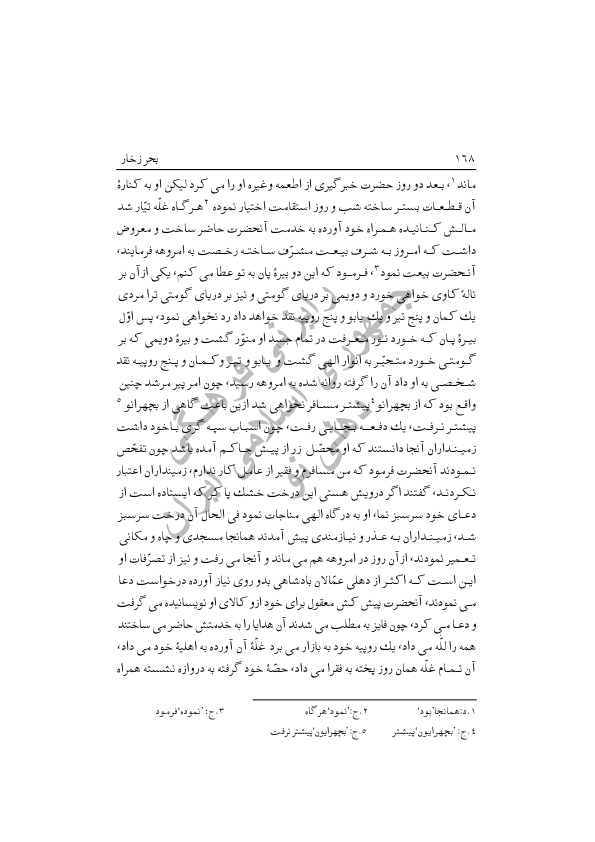 ۱٦۸ بحر زخار
ماند۱، بعد دو روز حضرت خبرگیری از اطعمه وغیره او را می کرد لیکن او به کنارهٔ
آن قطعات بستر ساخته شب و روز استقامت اختیار نموده۲ هرگاه غلّه تیّار شد
مالش کنانیده همراه خود آورده به خدمت آنحضرت حاضر ساخت و معروض
داشت که امروز به شرف بیعت مشرّف ساخته رخصت به امروهه فرمایند،
آنحضرت بیعت نمود۳، فرمود که این دو بیرهٔ پان به تو عطا می کنم، یکی ازآن بر
نالهٔ کاوی خواهی خورد و دویمی بر دریای گومتی و نیز بر دریای گومتی ترا مردی
یك کمان و پنج تیر و یك یابو و پنج روپیه نقد خواهد داد رد نخواهی نمود، پس اوّل
بیرهٔ پان که خورد نور معرفت در تمام جسد او منوّر گشت و بیرهٔ دویمی که بر
گومتی خورد متحیّر به انوار الهی گشت و یابو و تیر وکمان و پنج روپیه نقد
شخصی به او داد آن را گرفته روانه شده به امروهه رسید، چون امر پیر مرشد چنین
واقع بود که از بچهرانو٤ پیشتر مسافر نخواهی شد ازین باعث گاهی از بچهرانو٥
پیشتر نرفت، یك دفعه بجایی رفت، چون اسباب سپه گری باخود داشت
زمینداران آنجا دانستند که او محصّل زر از پیش حاکم آمده باشد چون تفحّص
نمودند آنحضرت فرمود که من مسافرم و فقیر از عامل کار ندارم، زمینداران اعتبار
نکردند، گفتند اگر درویش هستی این درخت خشك پاکر که ایستاده است از
دعای خود سرسبز نما، او به درگاه الهی مناجات نمود فی الحال آن درخت سرسبز
شد، زمینداران به عذر و نیازمندی پیش آمدند همانجا مسجدی و چاه و مکانی
تعمیر نمودند، ازآن روز در امروهه هم می ماند و آنجا می رفت و نیز از تصرّفات او
این است که اکثر از دهلی عمّالان بادشاهی بدو روی نیاز آورده درخواست دعا
می نمودند، آنحضرت پیش کش معقول برای خود ازو کالای او نویسانیده می گرفت
و دعا می کرد، چون فایز به مطلب می شدند آن هدایا را به خدمتش حاضر می ساختند
همه را للّه می داد، یك روپیه خود به بازار می برد غلّهٔ آن آورده به اهلیهٔ خود می داد،
آن تمام غلّه همان روز پخته به فقرا می داد، حصّهٔ خود گرفته به دروازه نشسته همراه
۱.د:همانجا'بود' ۲.ج:'نمود'هرگاه ۳.ج: 'نموده'فرمود
٤.ج: 'بچهرایون'پیشتر ٥.ج:'بچهرایون'پیشتر نرفت
رایزنی فرهنگی
جمهوری اسلامی ایران
دهلی نو